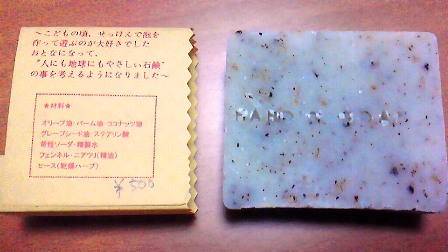 ～こどもの頃、せっけんで泡を
作って遊ぶのが大好きでした
おとなになって、
"人にも地球にもやさしい石鹸"
の事を考えるようになりました～
★材料★
オリーブ油・パーム油・ココナッツ油
グレープシード油・ステアリン酸
苛性ソーダ・精製水
フェンネル・ニアウリ(精油)
ヒース(乾燥ハーブ)
¥500